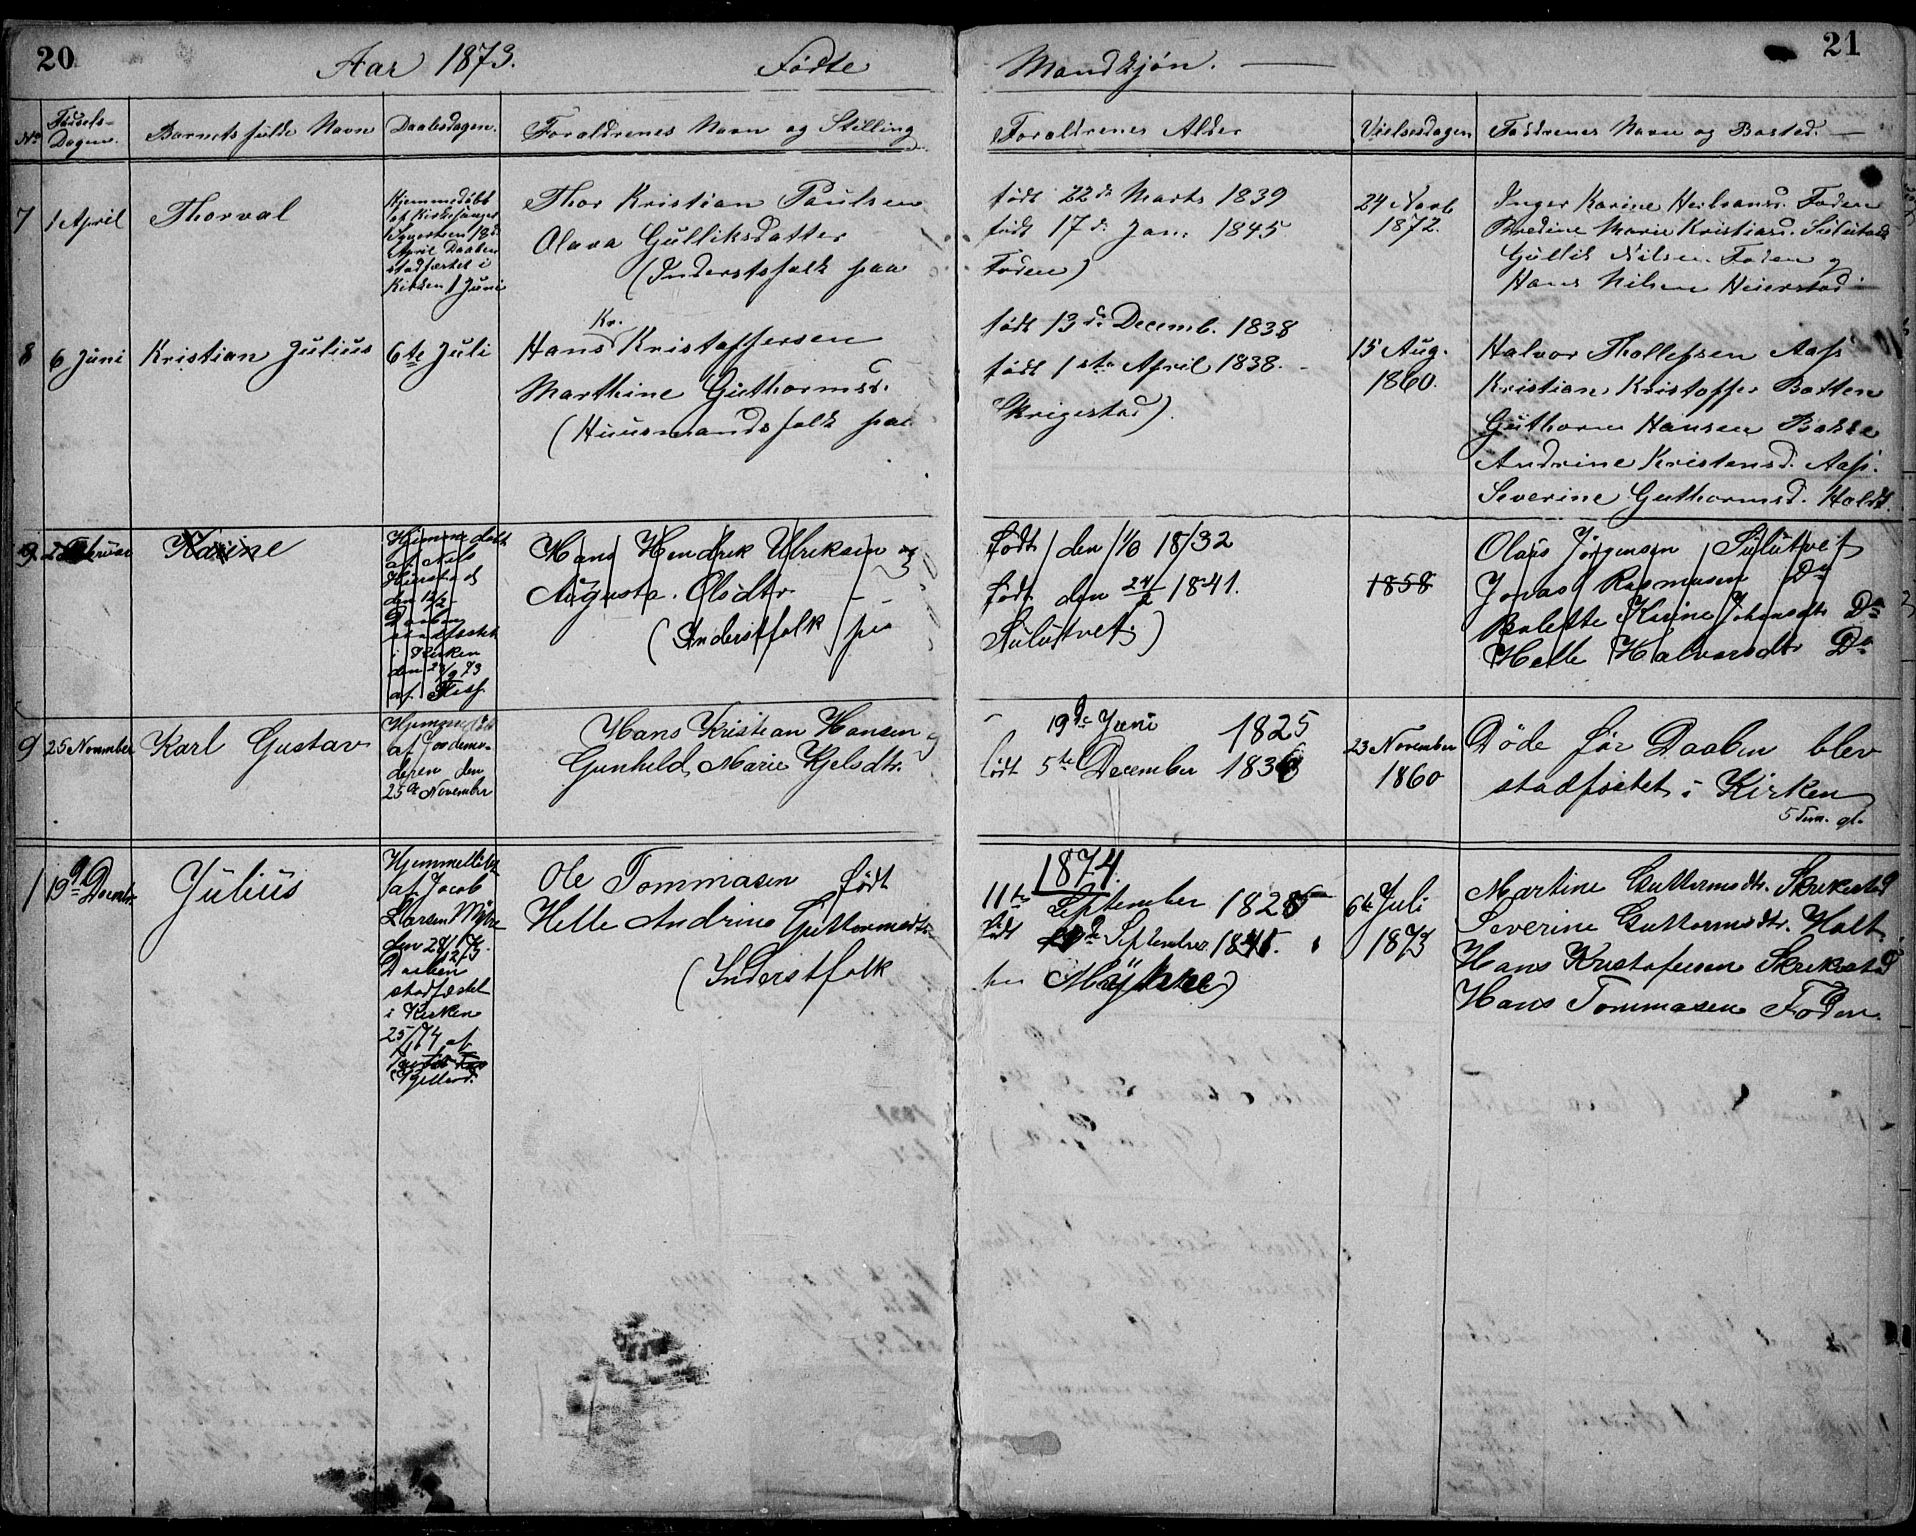 20
Aar 1873.
Fødte
Mandkjøn.
21
No
Fødsels-
Dagen.
Barnets fulde Navn
Daabsdagen.
Forældrenes Navn og Stilling
Forældrenes Alder
Vielsesdagen
Faddrenes Navn og Bosted.
7
1 April
Thorval
Hjemmedøbt
af Kirkesanger
18de
April Daaben
stadfæstet i
Kirken 1 Juni
Thor Kristian Paulsen
Olava Gulliksdatter
(Inderstsfolk paa
født 22de Marts 1839
født 17de Jan. 1845
Foden)
24 Novb
1872.
Inger Karine Foden
Bredine Marie Kristiansd.
Gullik Nilsen Foden og
Hans Nilsen Heierstad
8
6 Juni
Kristian Julius
6te Juli
Kr.
Hans Kristoffersen
Marthine Guthormsd.
(Huusmandsfolk paa
født 13de Decemb. 1838
født 1ste April 1838.
Skrigestad).
15 Aug.
1860.
Halvor Thollefsen Aas
Kristian Kristoffer Botten
Guthorm Hansen Bakke
Andrine Kristensd. Aas.
Severine Guthormsd. Holdt
9
Februar
Karine
Hjemmedøbt
af Nils
den 12/2
Daaben
stadfæstet
i Kirken
den
af
Hans Hendrik Ulriksen og
Augusta Olsdtr.
(Inderstfolk paa
født den 1/6 1832
født den 24/2 1841.
Sulutvet)
1858
Olaus Jørgensen Sulutvet
Jonas Rasmusen Do
Bolette Karine Johansdtr Do
Helle Halvorsdtr Do
9
25 November
Karl Gustav
Hjemmedøbt
af Jordemo-
deren den
25de November
Hans Kristian Hansen og
Gunhild Marie Kjelsdtr.
19de Juni 1825
født 5te December 1836
23 November
1860
Døde før Daaben blev
stadfæstet i Kirken
5 Tim. gl.
1874.
1
19de Decmbr.
Julius
Hjemmedøbt
af Jacob
Larsen Myhre
den 28/12 73.
Daaben
stadfæstet
i Kirken
25/1 74 af
Ole Tommasen født
Helle Andrine Guttormsdtr.
(Inderstfolk
11te September 1825
født September 1845.
paa Myhre)
6te Juli
1873
Martine Guttormsdtr. Skrikestad
Severine Guttormsdtr. Holt.
Hans Kristofersen Skrikestad
Hans Tommasen Foden.